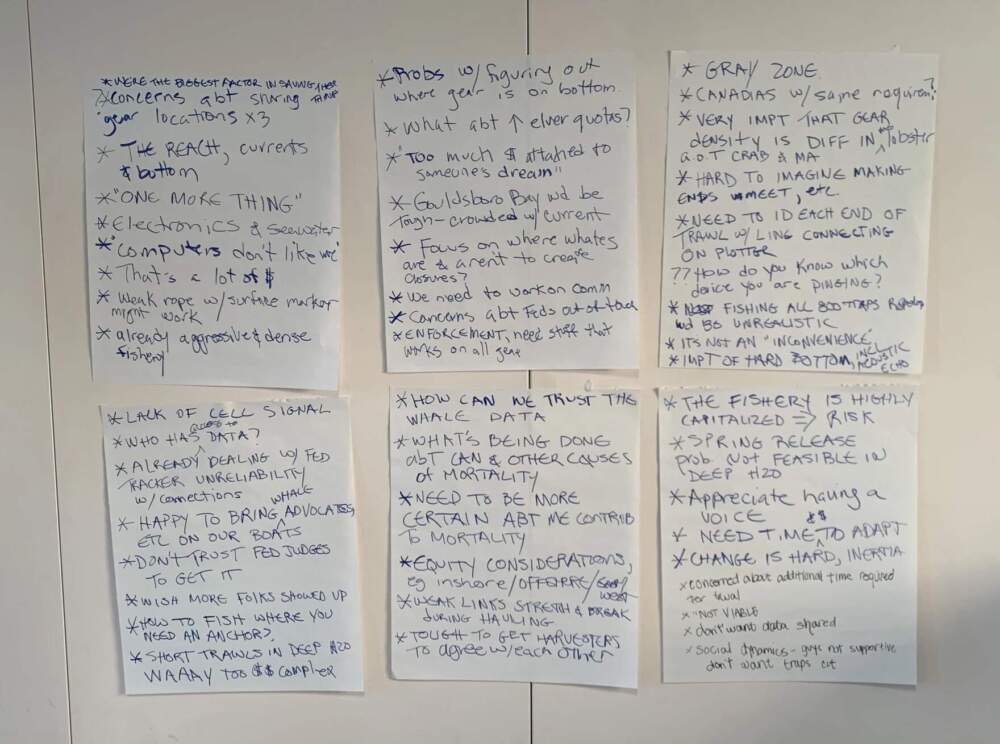 * WE'RE THE BIGGEST FACTOR IN SAVING
? * Concerns abt sharing
gear locations x3
* THE REACH, currents
& bottom
* "ONE MORE THING"
* Electronics & seawater
* "Computers don't like me"
* That's a lot of $
* Weak rope w/ surface marker
might work
* already aggressive & dense
fishery
* Probs w/ figuring out
where gear is on bottom
* What abt ↑ elver quotas?
* "Too much $ attached to
someone's dream"
* Gouldsboro Bay wd be
Tough - crowded w/ current
* Focus on where whales
are & aren't to create
closures?
* We need to work on comm
* Concerns abt Feds out of touch
* ENFORCEMENT, need stuff that
works on all gear
* GRAY ZONE
* CANADIAS w/ same requirem?
* VERY IMPT THAT GEAR
DENSITY IS DIFF IN lobster
a.o.T CRAB & MA
* HARD TO IMAGINE MAKING
ENDS MEET, etc
* NEED TO ID EACH END OF
TRAWL W/ LINE CONNECTING
ON PLOTTER
?? How do you know which
device you are PINGING?
* FISHING ALL 800 TRAPS
wd BE UNREALISTIC
* ITS NOT AN "INCONVENIENCE"
* IMPT OF HARD BOTTOM, INCL
ACOUSTIC
ECHO
* LACK OF CELL SIGNAL
* WHO HAS access to DATA?
* ALREADY DEALING W/ FED
TRACKER UNRELIABILITY
w/ connections
* HAPPY TO BRING WHALE ADVOCATES,
ETC ON OUR BOATS
* DON'T TRUST FED JUDGES
TO GET IT
* WISH MORE FOLKS SHOWED UP
* HOW TO FISH WHERE YOU
NEED AN ANCHOR?
* SHORT TRAWLS IN DEEP H20
WAAAY TOO $$ complex
* HOW CAN WE TRUST THE
WHALE DATA
* WHAT'S BEING DONE
abT CAN & OTHER CAUSES
of MORTALITY
* NEED TO BE MORE
CERTAIN ABT ME CONTRIB
TO MORTALITY
* EQUITY CONSIDERATIONS,
eg inshore/OFFSHORE/
west
* WEAK LINKS STRETCH & BREAK
DURING HAULING
* TOUGH TO GET HARVESTERS
to agree w/ each other
* THE FISHERY IS HIGHLY
CAPITALIZED ⇒ RISK
* SPRING RELEASE
prob Not FEASIBLE IN
DEEP H20
* Appreciate having a
VOICE
* NEED TIME, $$ TO ADAPT
* CHANGE IS HARD, INERTIA
x concerned about additional time required
for trawl
x "NOT VIABLE
x don't want data shared
x social dynamics - guys not supportive
don't want traps cut